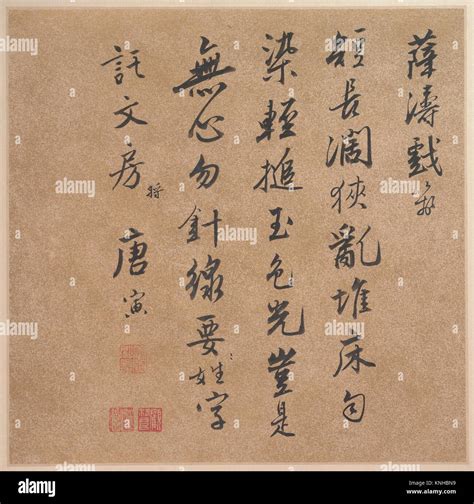 薛濤戲
短長濶狹亂堆床勻
染輕搥玉色光豈是
無心勿針線要姓字
託文房 將 唐寅
alamy
Image ID: KNHBN9
www.alamy.com